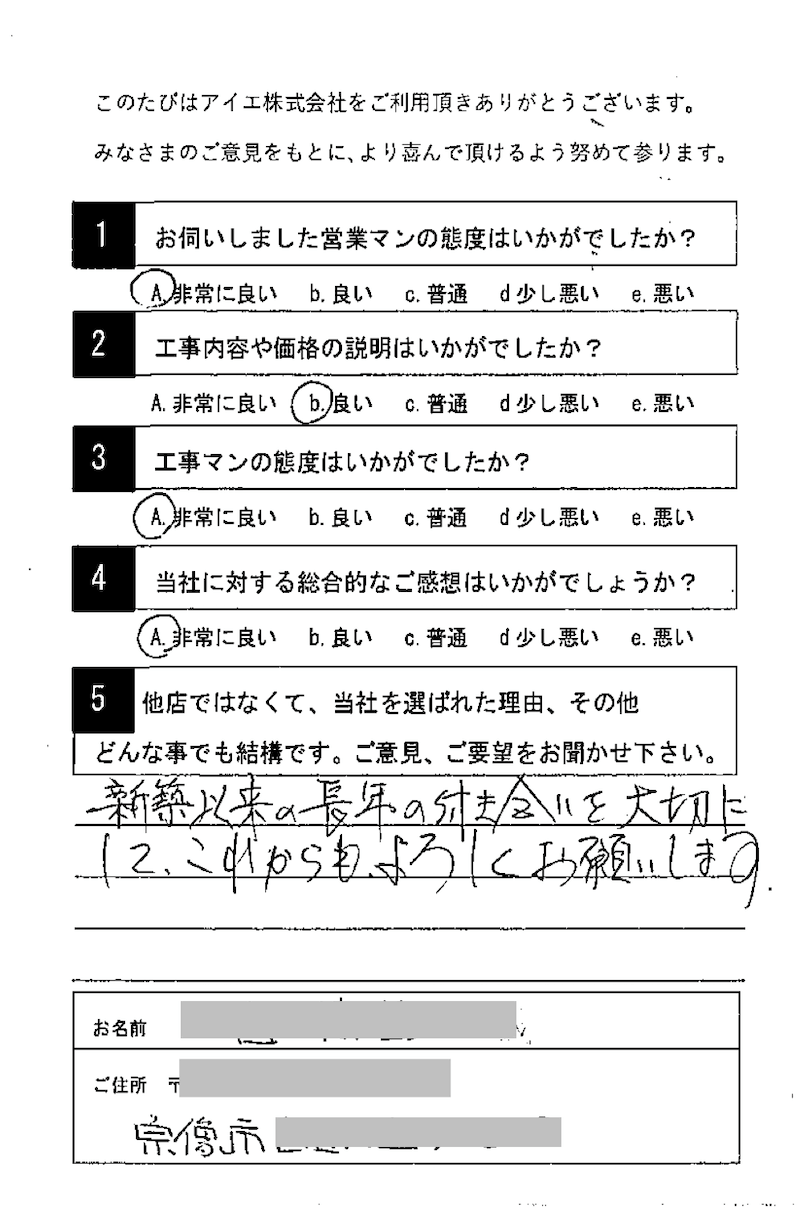 このたびはアイエ株式会社をご利用頂きありがとうございます。
みなさまのご意見をもとに、より喜んで頂けるよう努めて参ります。
1 お伺いしました営業マンの態度はいかがでしたか？
A. 非常に良い b. 良い c. 普通 d 少し悪い e. 悪い
2 工事内容や価格の説明はいかがでしたか？
A. 非常に良い b. 良い c. 普通 d 少し悪い e. 悪い
3 工事マンの態度はいかがでしたか？
A. 非常に良い b. 良い c. 普通 d 少し悪い e. 悪い
4 当社に対する総合的なご感想はいかがでしょうか？
A. 非常に良い b. 良い c. 普通 d 少し悪い e. 悪い
5 他店ではなくて、当社を選ばれた理由、その他
どんな事でも結構です。ご意見、ご要望をお聞かせ下さい。
新築以来の長年の付き合いを大切に
して、これからも、よろしくお願いします.
お名前
ご住所 〒
宗像市